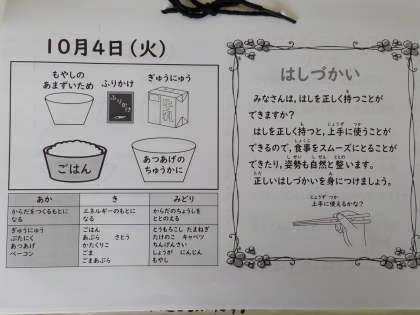 10月4日(火)
もやしの
あまずいため
ふりかけ
ぎゅうにゅう
ふりかけ
牛乳
ごはん
あつあげの
ちゅうかに
あか
き
みどり
からだをつくるもとに
なる
エネルギーのもとに
なる
からだのちょうしを
ととのえる
ぎゅうにゅう
ぶたにく
あつあげ
ベーコン
ごはん
あぶら さとう
かたくりこ
ごま
ごまあぶら
とうもろこし たまねぎ
たけのこ キャベツ
ちんげんさい
しょうが にんじん
もやし
はしづかい
みなさんは、はしを正しく持つことが
できますか?
はしを正しく持つと、上手に使うことが
できるので、食事をスムーズにとることが
できたり、姿勢も自然と整います。
正しいはしづかいを身につけましょう。
上手に使えるかな?